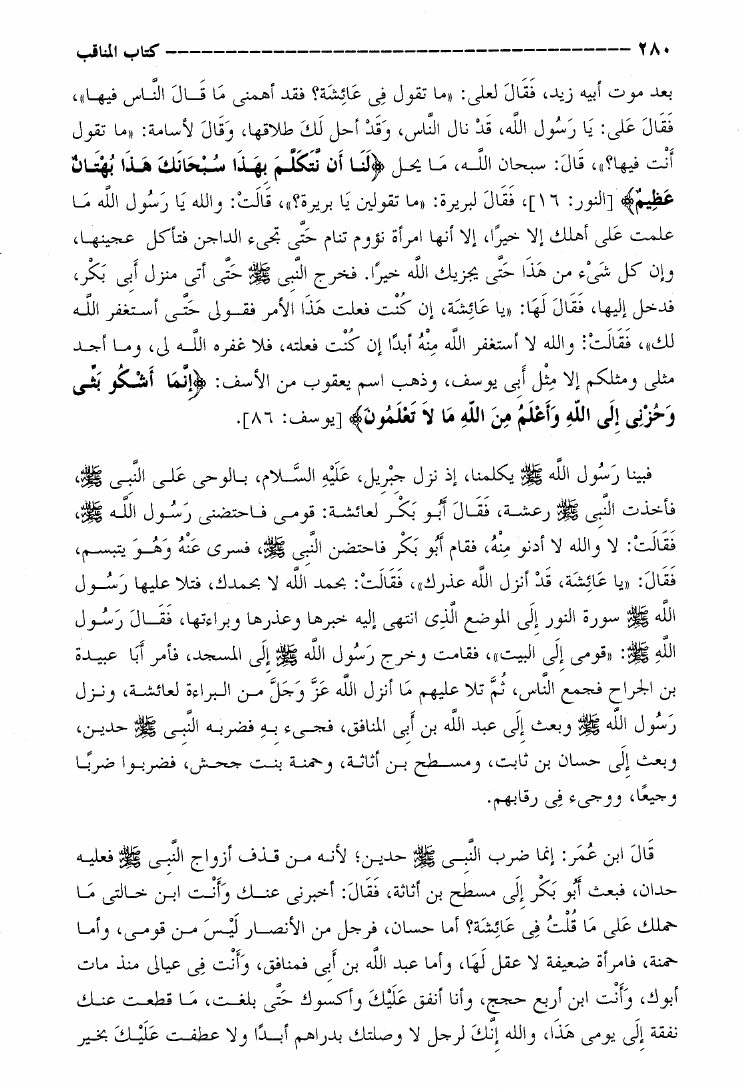 ٢٨٠ ------------------------------------------ كتاب المناقب
بعد موت أبيه زيد، فَقَالَ لعلى: «ما تقول فِى عَائِشَة؟ فقد أهمنى مَا قَـالَ النَّـاس فيهـا»،
فَقَالَ عَلى: يَا رَسُول الله، قَدْ نال النَّاس، وَقَدْ أحل لَكَ طلاقها، وَقَالَ لأسامة: «ما تقول
أَنْت فيها؟»، قَالَ: سبحان اللـه، مَـا يحـل ﴿لَنَـا أَن نَّتَكَلَّـمَ بِهَـذَا سُـبْحَانَكَ هَـذَا بُهْتَـانٌ
عَظِيمٌ﴾ [النور: ١٦]، فَقَالَ لبريرة: «ما تقولين يَا بريرة؟»، قَالَتْ: والله يَا رَسُول الله مَـا
علمت عَلَى أهلك إلا خيرًا، إلا أنها امرأة نؤوم تنام حَتَّى تجىء الداجن فتأكل عجينهـا،
وإن كل شَىْء من هَذَا حَتَّى يجزيك الله خيرًا. فخرج النَّبِى ﷺ حَتَّى أتى منزل أَبِى بَكْر،
فدخل إليها، فَقَالَ لَهَا: «يا عَائِشَة، إن كُنْت فعلت هَذَا الأمر فقـولى حَتَّـى أسـتغفر اللـه
لك»، فَقَالَتْ: والله لا أستغفر الله مِنْهُ أبدًا إن كُنْت فعلته، فلا غفره اللـه لى، ومـا أجـد
مثلى ومثلكم إلا مِثْل أَبِى يوسف، وذهب اسم يعقوب من الأسف: ﴿إِنَّمَا أَشْكُو بَثِّـى
وَحُزْنِى إِلَى اللَّهِ وَأَعْلَمُ مِنَ اللَّهِ مَا لاَ تَعْلَمُونَ﴾ [يوسف: ٨٦].
فبينا رَسُول الله ﷺ يكلمنا، إذ نزل جبْرِيل، عَلَيْهِ السَّـلام، بـالوحى عَلَـى النَّبِـى ﷺ،
فأخذت النَّبِى ﷺ رعشة، فَقَـالَ أَبُـو بَكْـر لعائشـة: قومـى فـاحتضنى رَسُـول اللـه ﷺ،
فَقَالَتْ: لا والله لا أدنو مِنْهُ، فقام أَبُو بَكْر فاحتضن النَّبِى ﷺ، فسرى عَنْهُ وَهُـوَ يتبسـم،
فَقَالَ: «يا عَائِشَة، قَدْ أنزل الله عذرك»، فَقَالَتْ: بحمد الله لا بحمدك، فتلا عليها رَسُـول
الله ﷺ سورة النور إِلَى الموضع الَّذِى انتهى إليه خبرها وعذرها وبراءتها، فَقَـالَ رَسُـول
اللَّهِ ﷺ: «قومى إِلَى البيت»، فقامت وخرج رَسُول الله ﷺ إِلَى المسجد، فأمر أَبَا عبيـدة
بن الجراح فجمع النَّاس، ثُمَّ تلا عليهم مَا أنزل الله عَزَّ وَجَلَّ مـن الـبراءة لعائشـة، ونـزل
رَسُول الله ﷺ وبعث إِلَى عبد الله بن أَبِى المنافق، فجـىء بِـهِ فضربـه النَّبِـى ﷺ حديـن،
وبعث إِلَى حسان بن ثابت، ومسـطح بـن أثاثـة، وحمنـة بنـت جحـش، فضربـوا ضربًـا
وجيعًا، ووجىء فِى رقابهم.
قَالَ ابن عُمَر: إنما ضرب النَّبِـى ﷺ حديـن؛ لأنـه مـن قـذف أزواج النَّبِـى ﷺ فعليـه
حدان، فبعث أَبُو بَكْر إِلَى مسطح بن أثاثة، فَقَالَ: أخبرنى عنـك وَأَنْـت ابـن خـالتى مَـا
حملك عَلَى مَا قُلْتُ فِى عَائِشَة؟ أما حسان، فرجل من الأنصـار لَيْـسَ مـن قومـى، وأمـا
حمنة، فامرأة ضعيفة لا عقل لَهَا، وأما عبد الله بن أَبِى فمنافق، وَأَنْت فِى عيالى منذ مات
أبوك، وَأَنْت ابن أربع حجج، وأنا أنفق عَلَيْكَ وأكسوك حَتَّى بلغـت، مَـا قطعـت عنـك
نفقة إِلَى يومى هَذَا، والله إِنَّكَ لرجل لا وصلتك بدراهم أبـدًا ولا عطفـت عَلَيْـكَ بخـير